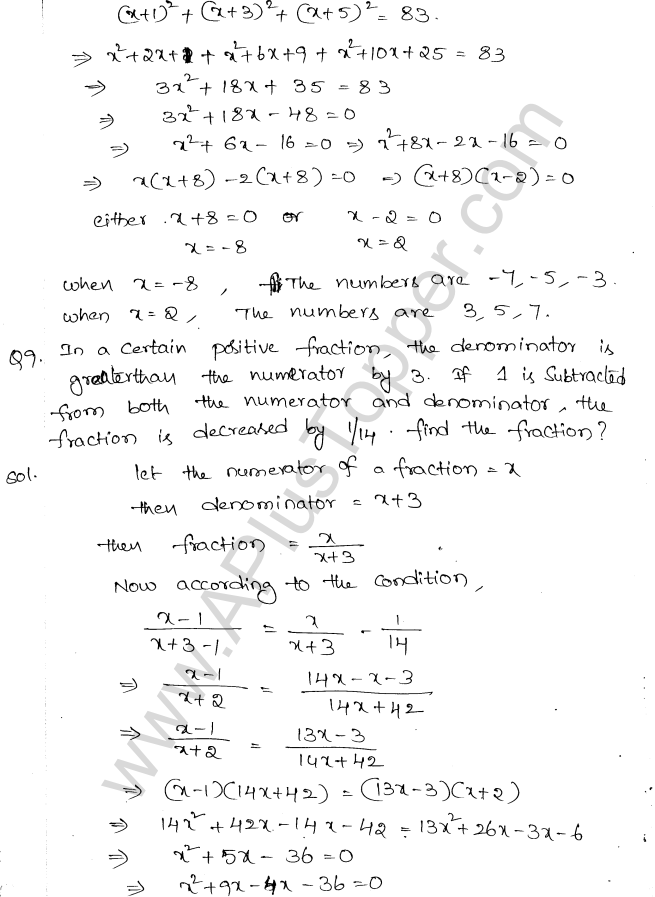 (x+1)² + (x+3)² + (x+5)² = 83.
⇒ x²+2x+1 + x²+6x+9 + x²+10x+25 = 83
⇒ 3x²+18x+35 = 83
⇒ 3x²+18x-48=0
⇒ x²+6x-16=0 ⇒ x²+8x-2x-16=0
⇒ x(x+8)-2(x+8)=0 ⇒ (x+8)(x-2)=0
either x+8=0 or x-2=0
x=-8 x=2
when x=-8, The numbers are -7,-5,-3.
when x=2, The numbers are 3,5,7.
Q9. In a certain positive fraction, the denominator is
greaterthan the numerator by 3. If 1 is subtracted
from both the numerator and denominator, the
fraction is decreased by 1/14. find the fraction?
sol. let the numerator of a fraction = x
then denominator = x+3
then fraction = x/(x+3)
Now according to the condition,
(x-1)/(x+3-1) = x/(x+3) - 1/14
⇒ (x-1)/(x+2) = (14x-x-3)/(14x+42)
⇒ (x-1)/(x+2) = (13x-3)/(14x+42)
⇒ (x-1)(14x+42) = (13x-3)(x+2)
⇒ 14x²+42x-14x-42 = 13x²+26x-3x-6
⇒ x²+5x-36=0
⇒ x²+9x-4x-36=0
www.APlusTopper.com